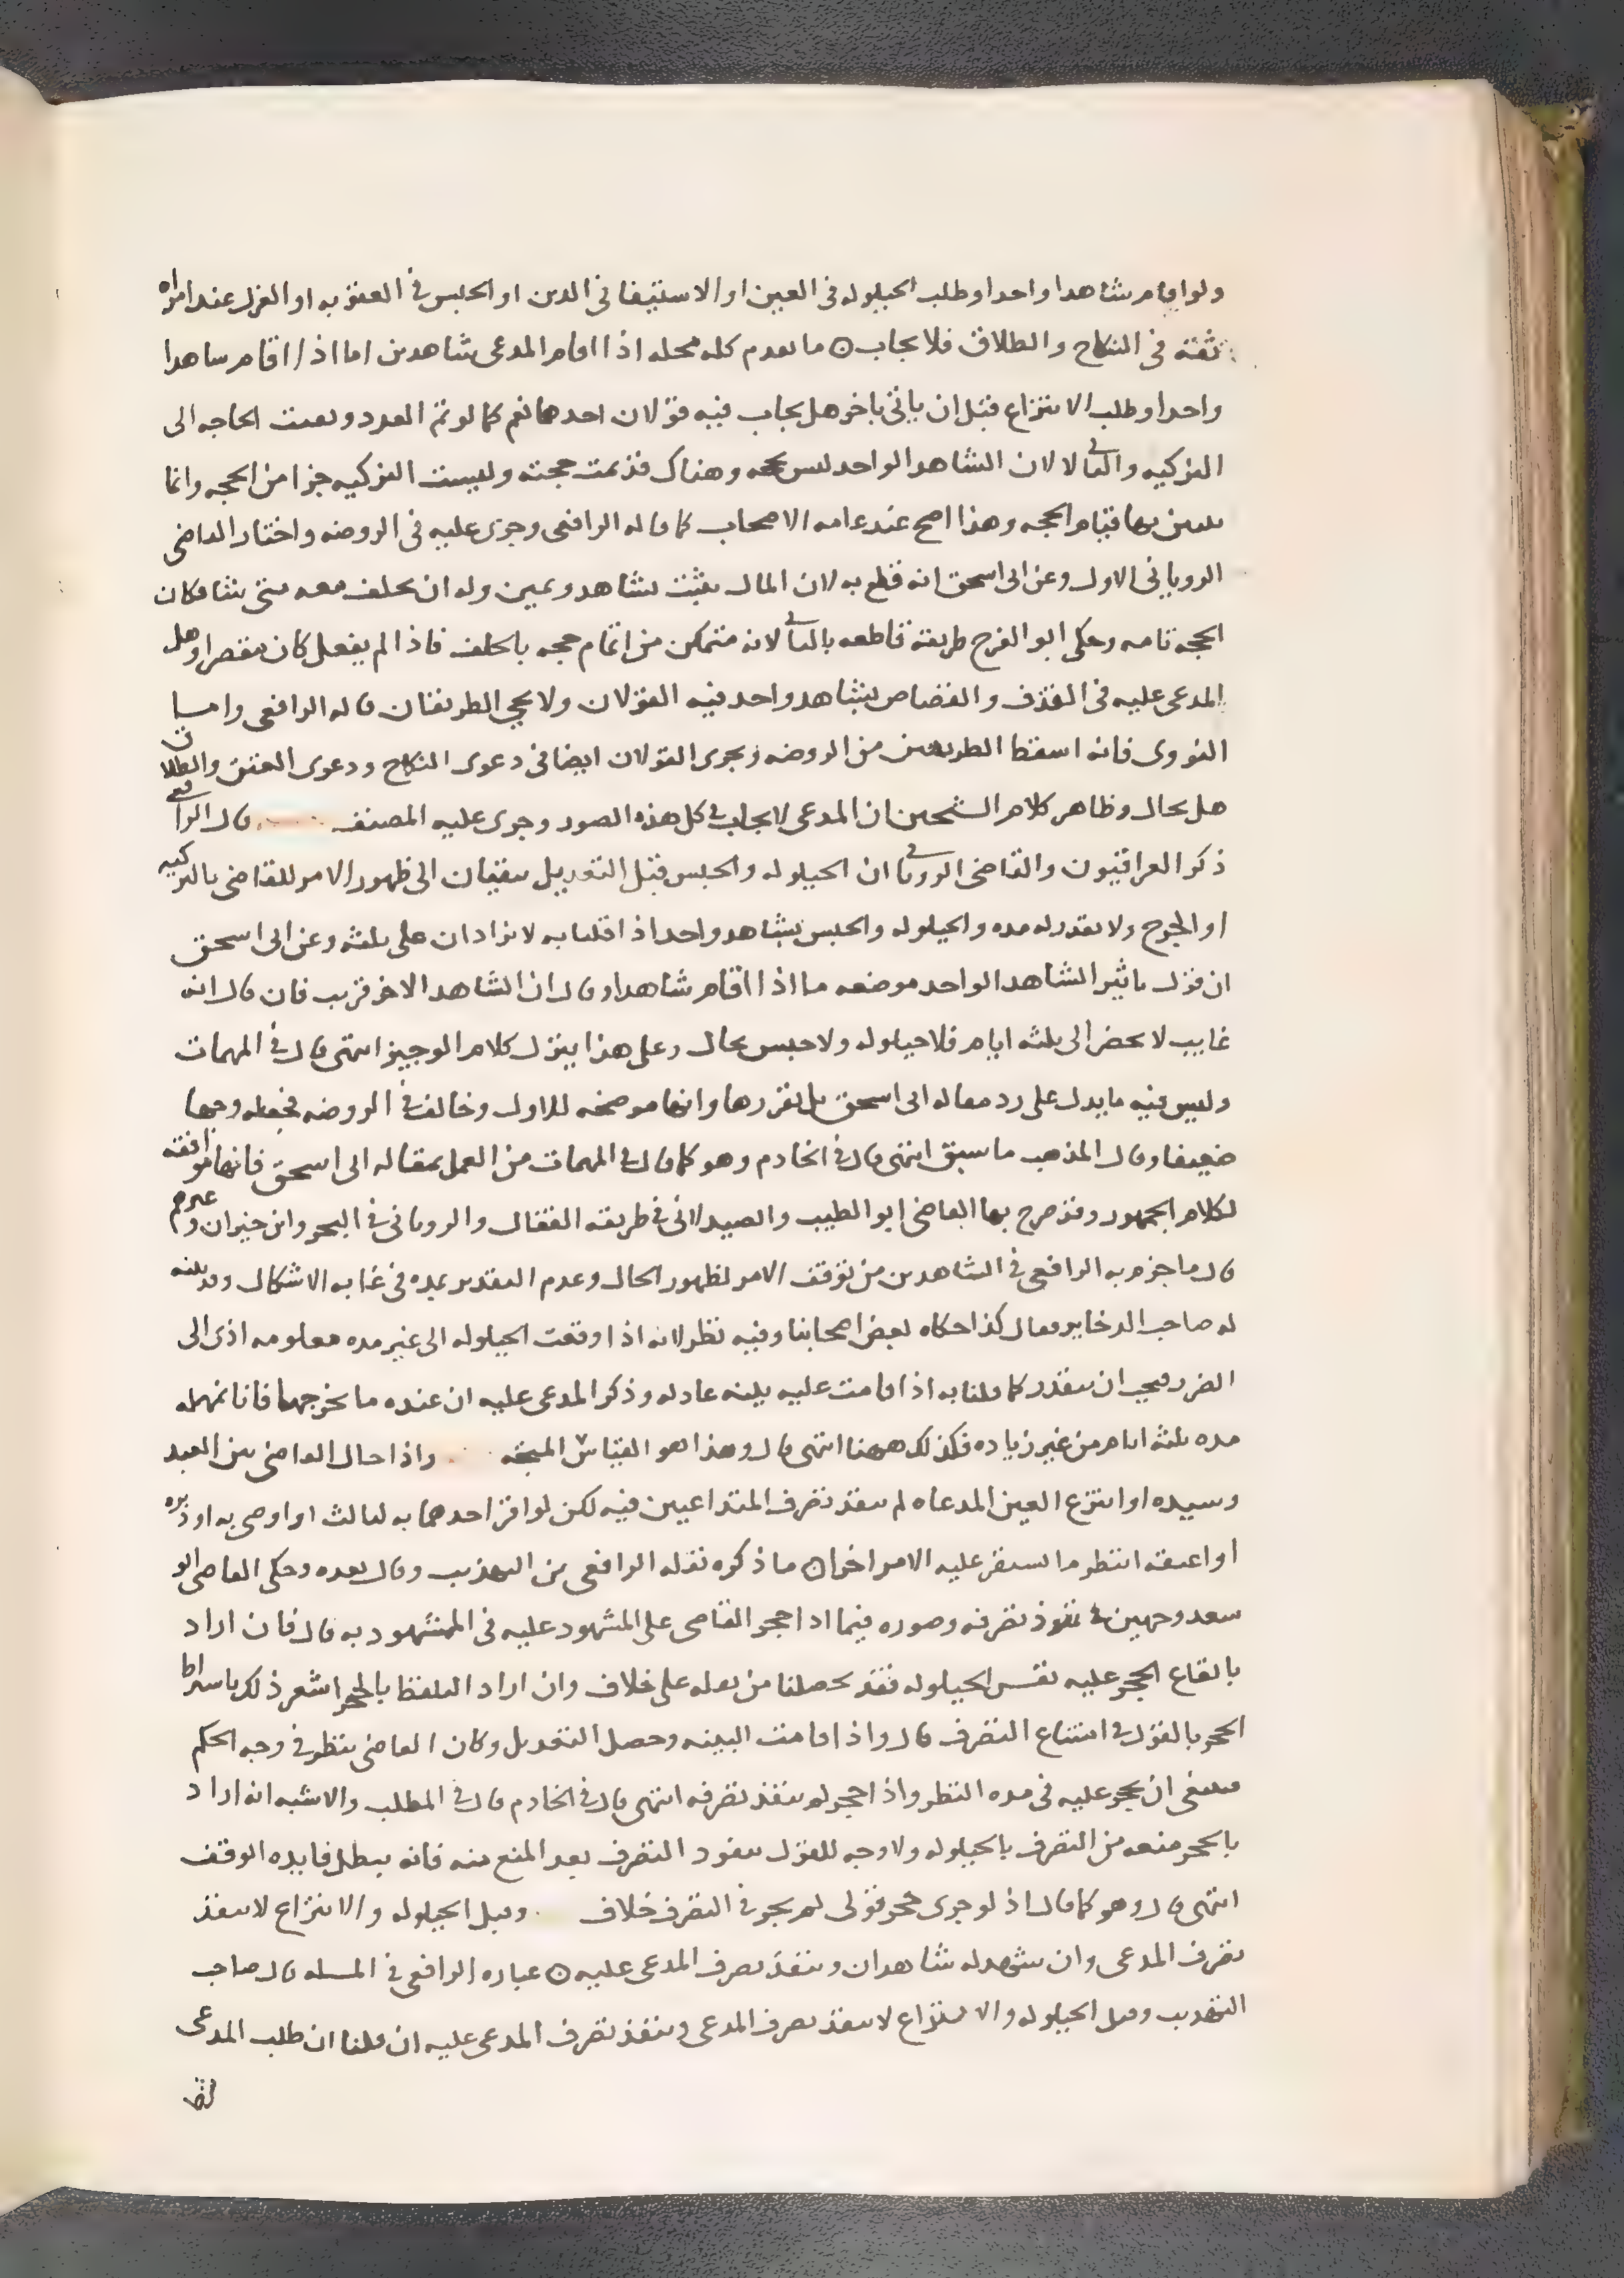 ولو اقام شاهدا واحدا وطلب الحيلوله في العين او الاستيفا في الدين او الحبس في العقوبه او العزل عند امراه
ثقته في النكاح والطلاق فلا يجاب ٥ ما تقدم كله محله اذا اقام المدعى شاهدين اما اذا اقام شاهدا
واحدا وطلب الانتزاع قبل ان ياتي باخر هل يجاب فيه قولان احدهما نعم كما لو تم العدد وبقيت الحاجه الى
التزكيه والثاني لا لان الشاهد الواحد ليس بحجه وهناك قد تمت حجته وليست التزكيه جزا من الحجه وانما
يتبين بها قيام الحجه وهذا اصح عند عامه الاصحاب كما قاله الرافعي وجرى عليه في الروضه واختار القاضي
الروياني الاول وعن ابي اسحق انه قطع به لان المال يثبت بشاهد ويمين وله ان يحلف معه متى شا فكان
الحجه تامه وحكى ابو الفرج طريقه قاطعه بالثاني لانه متمكن من اتمام حجه بالحلف فاذا لم يفعل كان مقصرا وهل
المدعى عليه في القذف والقصاص بشاهد واحد فيه القولان ولا يجي الطريقان قاله الرافعي واما
النووي فانه اسقط الطريقين من الروضه ويجرى القولان ايضا في دعوى النكاح ودعوى العتق والطلاق
هل يحال وظاهر كلام الشيخين ان المدعى لا يجاب في كل هذه الصور وجرى عليه المصنف قال الرافعي
ذكر العراقيون والقاضي الروياني ان الحيلوله والحبس قبل التعديل يبقيان الى ظهور الامر للقاضي بالتزكيه
او الجرح ولا يقدر له مده والحيلوله والحبس بشاهد واحد اذا قلنا به لا يزادان على ثلثه وعن ابي اسحق
ان قول تاثير الشاهد الواحد موضعه ما اذا اقام شاهدا وقال ان الشاهد الاخر قريب فان قال انه
غايب لا يحضر الى ثلثه ايام فلا حيلوله ولا حبس بحال وعلى هذا ينزل كلام الوجيز انتهى قال في المهمات
وليس فيه ما يدل على رد مقاله ابي اسحق بل تقررها وانها موضحه للاول وخالف في الروضه فجعله وجها
ضعيفا وقال المذهب ما سبق انتهى قال في الخادم وهو كما قال في المهمات من العمل بمقاله ابي اسحق فانها موافقه
لكلام الجمهور وقد صرح بها القاضي ابو الطيب والصيدلاني في طريقه القفال والروياني في البحر وابن خيران وغيرهم
قال ما جزم به الرافعي في الشاهدين من توقف الامر لظهور الحال وعدم التقدير بمده في غايه الاشكال وقد
له صاحب الدخاير فقال كذا حكاه بعض اصحابنا وفيه نظر لانه اذا وقعت الحيلوله الى غير مده معلومه ادى الى
الضرر فيجب ان يتقدر كما قلنا به اذا قامت عليه بينه عادله وذكر المدعى عليه ان عنده ما يخرجها فانا نمهله
مده ثلثه ايام من غير زياده فكذلك ههنا انتهى قال وهذا هو القياس المتجه واذا حال القاضي بين العبد
وسيده او انتزع العين المدعاه لم ينفذ تصرف المتداعيين فيه لكن لو اقر احدهما به لثالث او اوصى به او دبره
او اعتقه انتظر ما يستقر عليه الامر اخرا ٥ ما ذكره نقله الرافعي عن التهذيب وقال بعده وحكى القاضي ابو
سعد وجهين في نفوذ تصرفه وصوره فيما اذا حجر القاضي على المشهود عليه في المشهود به قال فان اراد
بايقاع الحجر عليه نفس الحيلوله فقد تحصلنا من نقله على خلاف وان اراد التلفظ بالحجر اشعر ذلك باشتراط
الحجر بالقول في امتناع التصرف قال واذا قامت البينه وحصل التعديل وكان القاضي ينظر في وجه الحكم
فينبغي ان يحجر عليه في مده النظر واذا حجر لم ينفذ تصرفه انتهى قال في الخادم قال في المطلب والاشبه انه اراد
بالحجر منعه من التصرف بالحيلوله ولا وجه للقول بنفوذ التصرف بعد المنع منه فانه يبطل فايده الوقف
انتهى قال وهو كما قال اذ لو جرى حجر قولي لم يجر في التصرف خلاف وقبل الحيلوله والانتزاع لا ينفذ
تصرف المدعى وان شهد له شاهدان وينفذ تصرف المدعى عليه ٥ عباره الرافعي في المسله قال صاحب
التهذيب وقبل الحيلوله والانتزاع لا ينفذ تصرف المدعى وينفذ تصرف المدعى عليه ان قلنا ان طلب المدعى